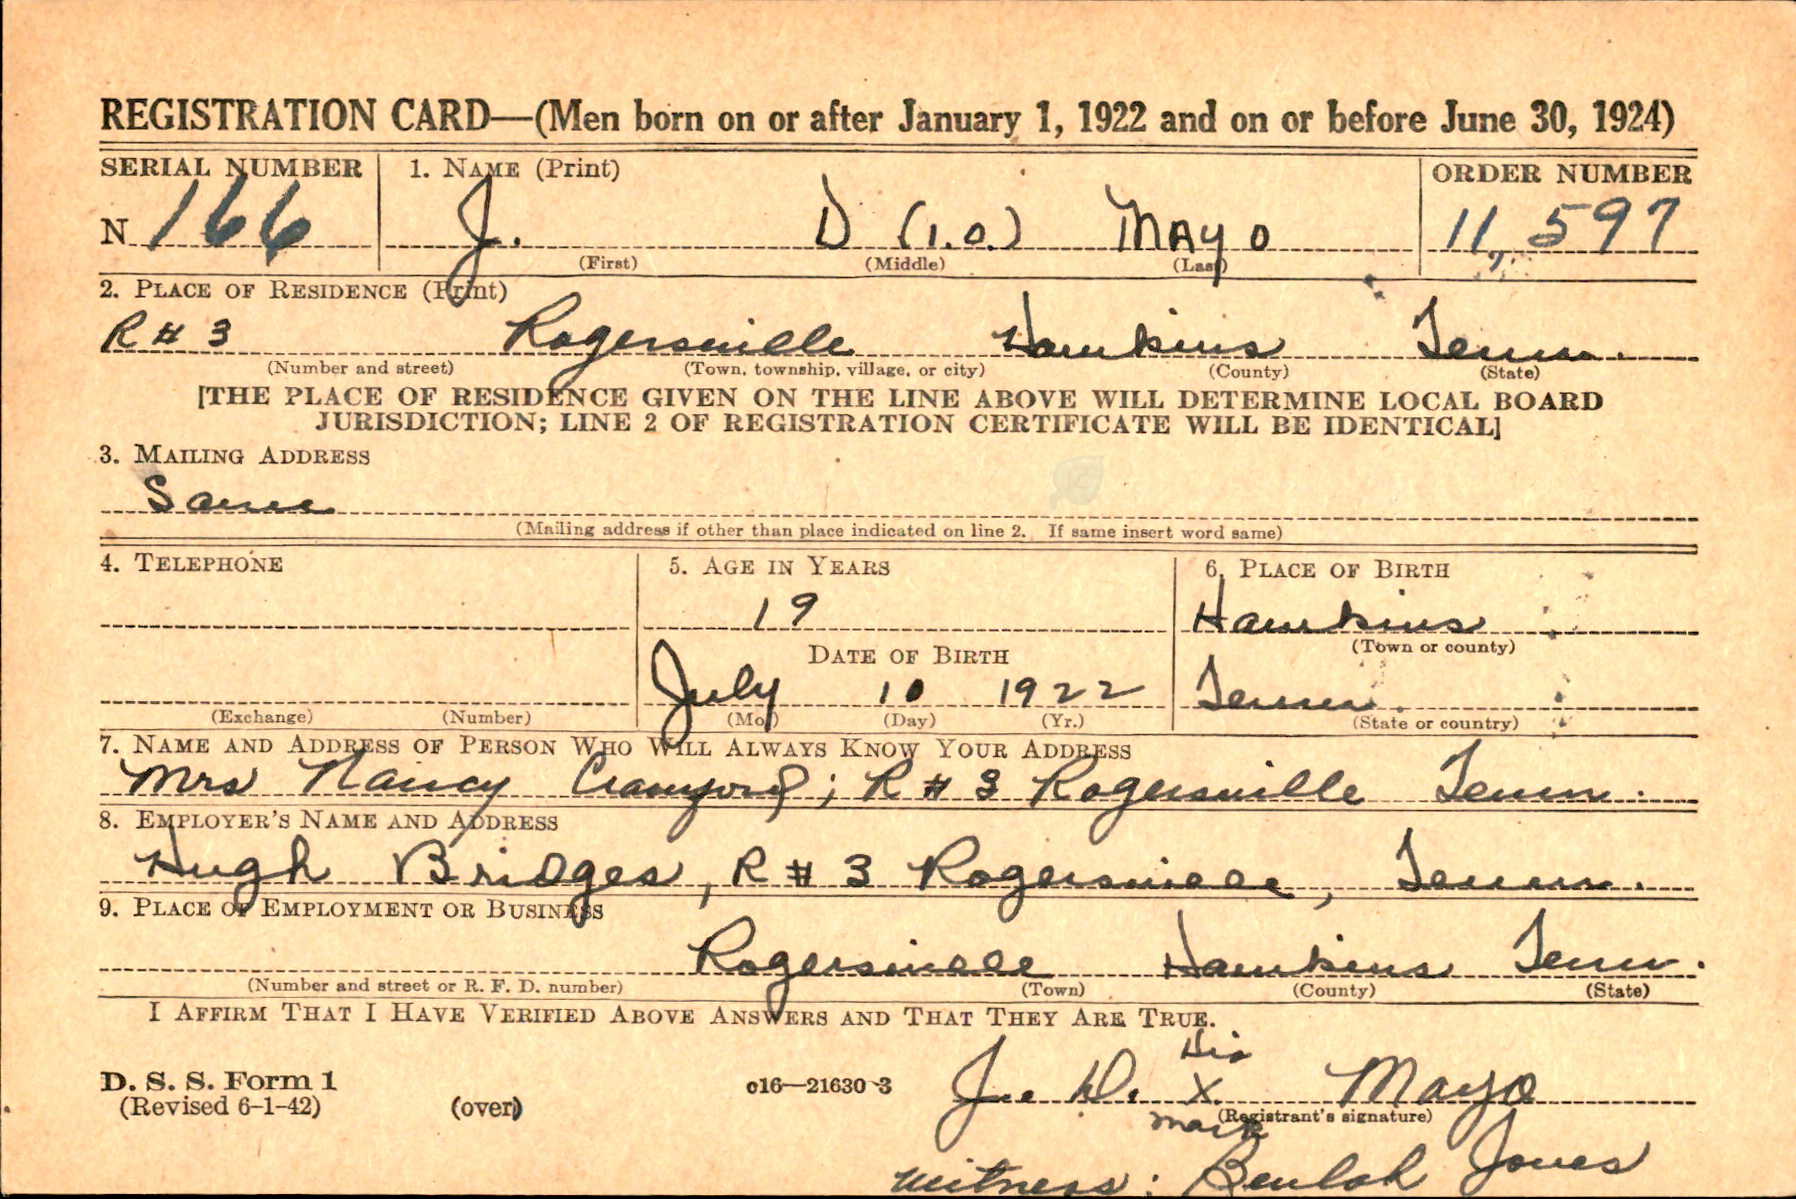 REGISTRATION CARD—(Men born on or after January 1, 1922 and on or before June 30, 1924)
SERIAL NUMBER 1. NAME (Print) ORDER NUMBER
N 166 J. D (I.O.) MAYO 11,597
(First) (Middle) (Last)
2. PLACE OF RESIDENCE (Print)
R # 3 Rogersville Hawkins Tenn.
(Number and street) (Town, township, village, or city) (County) (State)
[THE PLACE OF RESIDENCE GIVEN ON THE LINE ABOVE WILL DETERMINE LOCAL BOARD
JURISDICTION; LINE 2 OF REGISTRATION CERTIFICATE WILL BE IDENTICAL]
3. MAILING ADDRESS
Same
(Mailing address if other than place indicated on line 2. If same insert word same)
4. TELEPHONE 5. AGE IN YEARS 6. PLACE OF BIRTH
19 Hawkins
(Town or county)
DATE OF BIRTH
July 10 1922 Tenn.
(Exchange) (Number) (Mo.) (Day) (Yr.) (State or country)
7. NAME AND ADDRESS OF PERSON WHO WILL ALWAYS KNOW YOUR ADDRESS
Mrs Nancy Crawford; R # 3 Rogersville Tenn.
8. EMPLOYER'S NAME AND ADDRESS
Hugh Bridges, R # 3 Rogersville, Tenn.
9. PLACE OF EMPLOYMENT OR BUSINESS
Rogersville Hawkins Tenn.
(Number and street or R. F. D. number) (Town) (County) (State)
I AFFIRM THAT I HAVE VERIFIED ABOVE ANSWERS AND THAT THEY ARE TRUE.
His
D. S. S. Form 1 c16—21630-3 J. D. X Mayo
(Revised 6-1-42) (over) (Registrant's signature)
mark
Witness: Beulah Jones